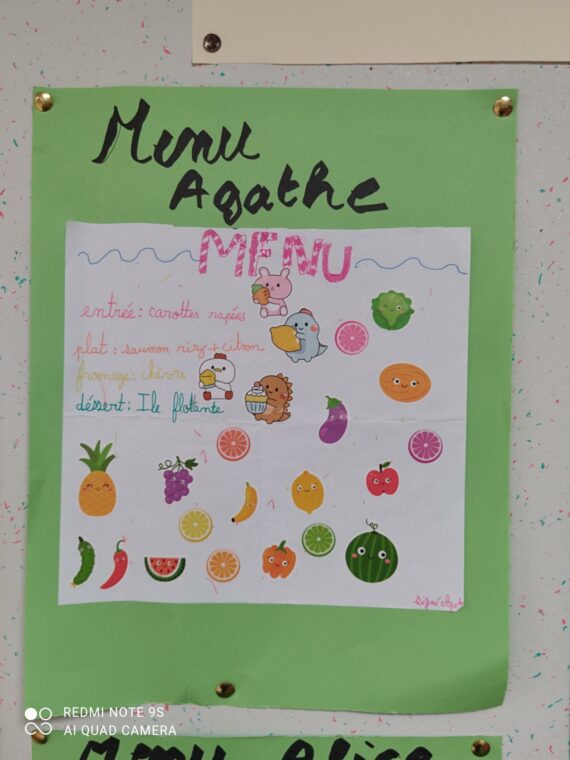 Menu
Agathe
MENU
entrée: carottes rapées
plat: saumon riz + citron
fromage: chèvre
déssert: Ile flotante
signé
REDMI NOTE 9S
AI QUAD CAMERA
Menu Alice